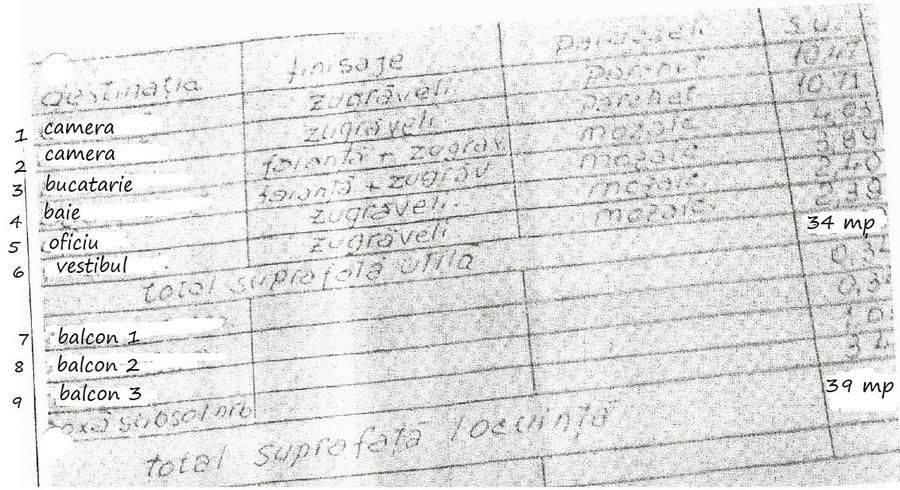 destinația finisaje pardoseli S.U.
1 camera zugrăveli parchet 10,47
2 camera zugrăveli parchet 10,71
3 bucatarie faianță + zugrăv mozaic
4 baie faianță + zugrăv mozaic
5 oficiu zugrăveli mozaic 2,40
6 vestibul zugrăveli mozaic
total suprafață utilă 34 mp
7 balcon 1
8 balcon 2
9 balcon 3
boxă subsol
total suprafață locuință 39 mp